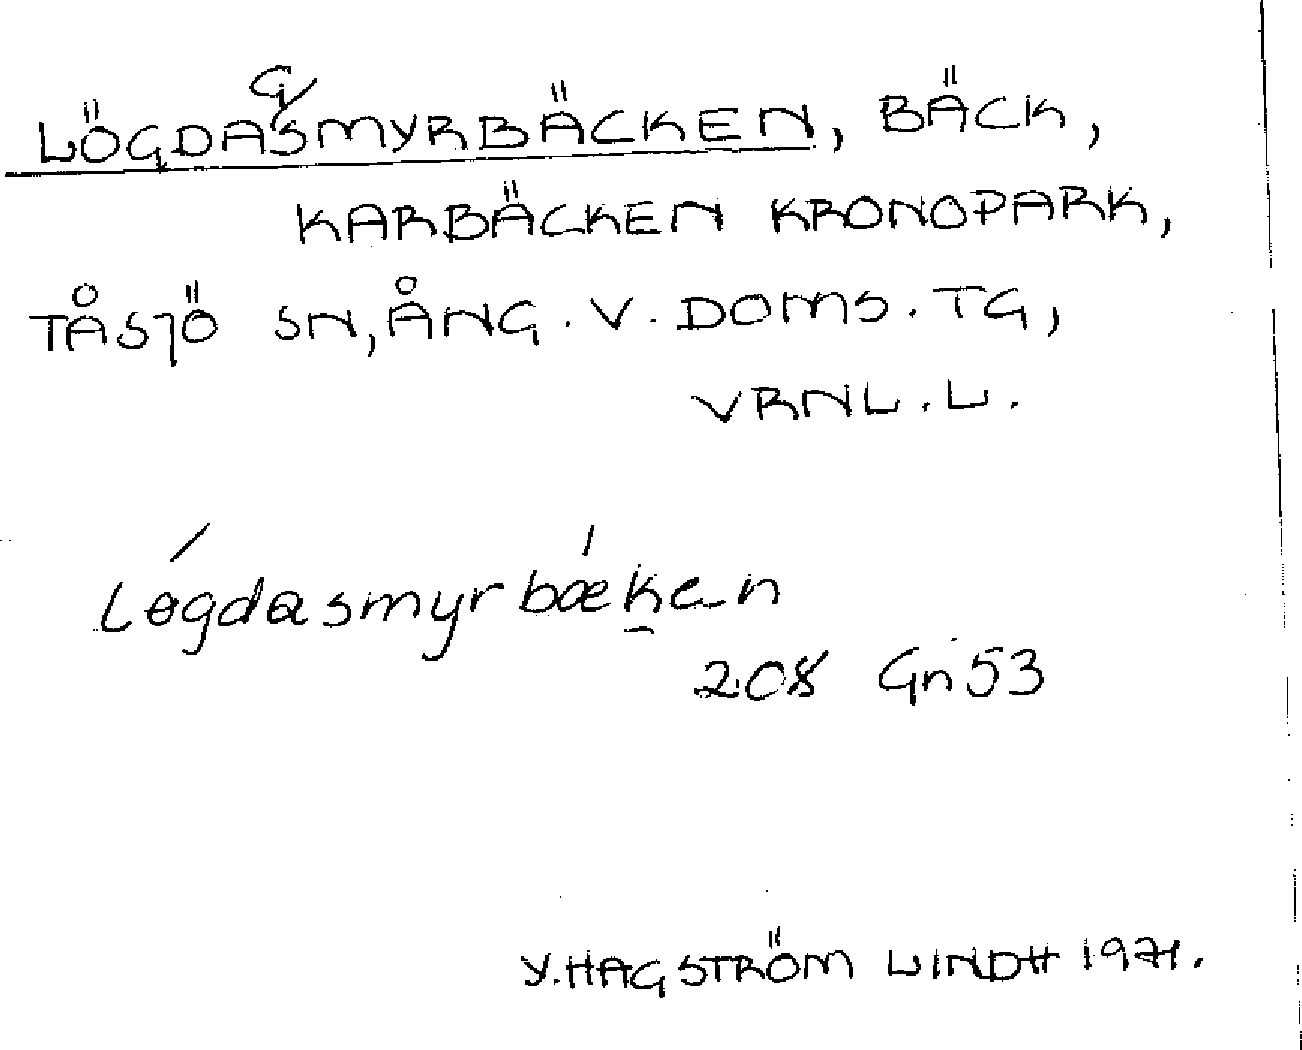 LÖGDAGSMYRBÄCKEN, BÄCK,
KARBÄCKEN KRONOPARK,
TÅSJÖ SN, ÅNG. V. DOMS. TG,
VRNL. L.
Løgdasmyrbæken
208 Gn 53
Y. HAGSTRÖM LINDH 1971.